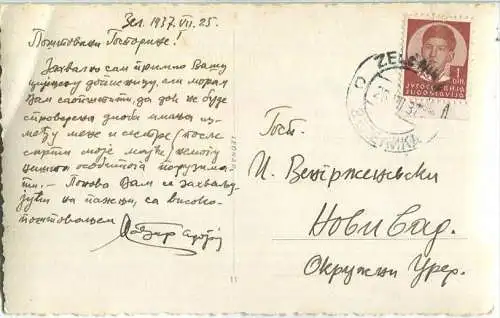 Зел. 1937. VII. 25.
Поштовани Господине!
Захвално сам примио Вашу
дописницу, али морам
Вам саопштити, да док не буде
створена диоба имања из-
међу мене и сестре (после
смрти моје мајке) не могу
ништа особитога
ти. — Понова Вам се захваљу-
јући на пажњи, са високо-
поштовањем
Госп.
И.
Нови Сад.
Окружни Уред.
ZELE
1
DIN.
ЈУГОСЛАВИЈА
JUGOSLAVIJA